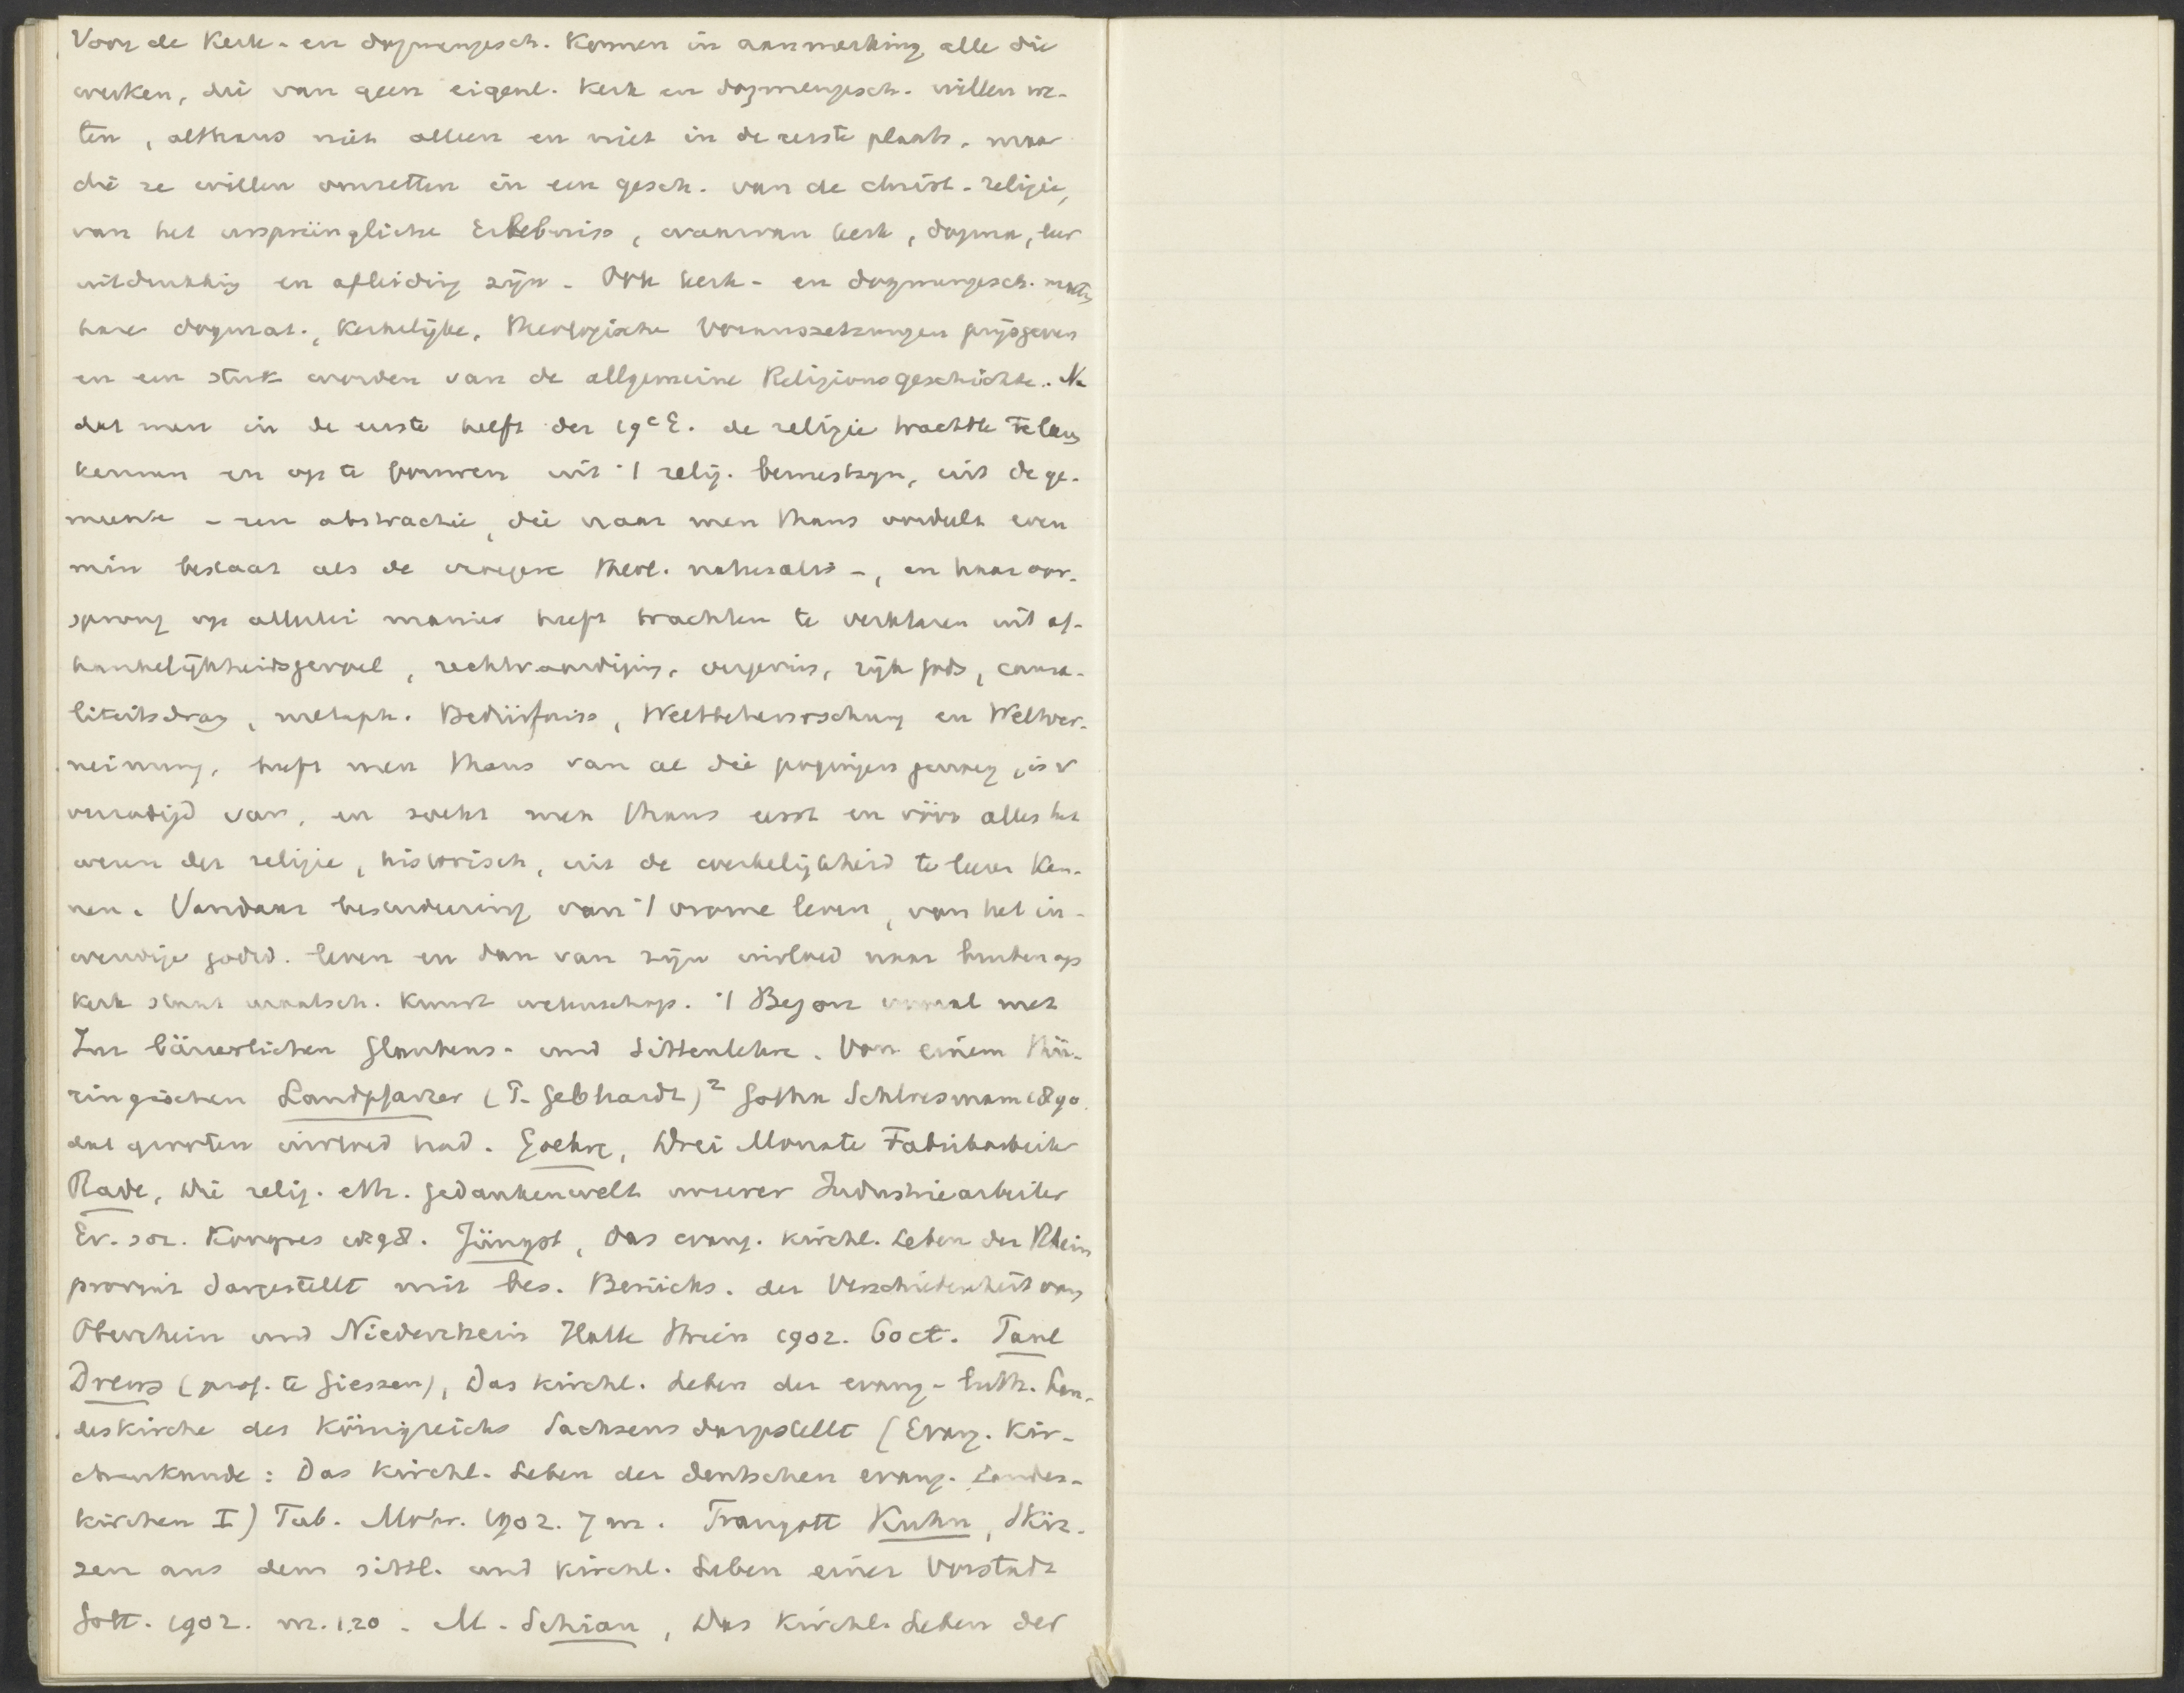 Voor de Kerk- en dogmengesch. Komen in aanmerking alle die
werken, die van geen eigenl. Kerk en dogmengesch. willen we-
ten, althans niet alleen en niet in de eerste plaats, maar
die ze willen omzetten in een gesch. van de christ. religie,
van het ursprüngliche Erlebniss, waarvan kerk, dogma, leer
uitdrukking en afleiding zijn. Ook kerk- en dogmengesch. moeten
hare dogmat., Kerkelijke, theologische Voraussetzungen prijsgeven
en een stuk worden van de allgemeine Religionsgeschichte. Na
dat men in de eerste helft der 19e E. de religie trachtte te leeren
kennen en op te bouwen uit 't relig. bewustzijn, uit de ge-
meente - een abstractie, die naar men thans oordeelt even
min bestaat als de vroegere theol. naturalis -, en haar oor-
sprong op allerlei manier heeft trachten te verklaren uit af-
hankelijkheidsgevoel, rechtvaardiging, vergeving, rijk Gods, causa-
liteitsdrang, metaph. Bedürfniss, Weltbeherrschung en Weltver-
neinung, heeft men thans van al die pogingen genoeg, is v
verzadigd van, en zoekt men thans eerst en vóór alles het
wezen der religie, historisch, uit de werkelijkheid te leeren Ken-
nen. Vandaar bestudeering van 't vrome leven, van het in-
wendige godsd. leven en dan van zijn invloed naar buiten op
Kerk staat maatsch. Kunst wetenschap. 't Begon vooral met
Zur bäuerlichen Glaubens- und Sittenlehre. Von einem thü-
ringischen Landpfarrer (T. Gebhardt)² Gotha Schloessmann 1890.
dat grooten invloed had. Goehre, Drei Monate Fabrikarbeiter
Rade, Die relig. eth. Gedankenwelt unserer Industriearbeiter
Ev. soz. Kongres 1898. Jüngst, Das evang. kirchl. Leben der Rhein
provinz dargestellt mit bes. Berücks. der Verschiedenheit von
Oberrhein und Niederrhein Halle Strien 1902. 60 ct. Paul
Drews (prof. te Giessen), Das kirchl. Leben der evang-luth. Lan-
deskirche des Königreichs Sachsens dargestellt (Evang. Kir-
chenkunde: Das Kirchl. Leben der deutschen evang. Landes-
kirchen I) Tub. Mohr. 1902. 7 m. Traugott Kuhn, Skiz-
zen aus dem sittl. und kirchl. Leben einer Vorstadt
Gött. 1902. m. 1.20. M. Schian, Das Kirchl. Leben der